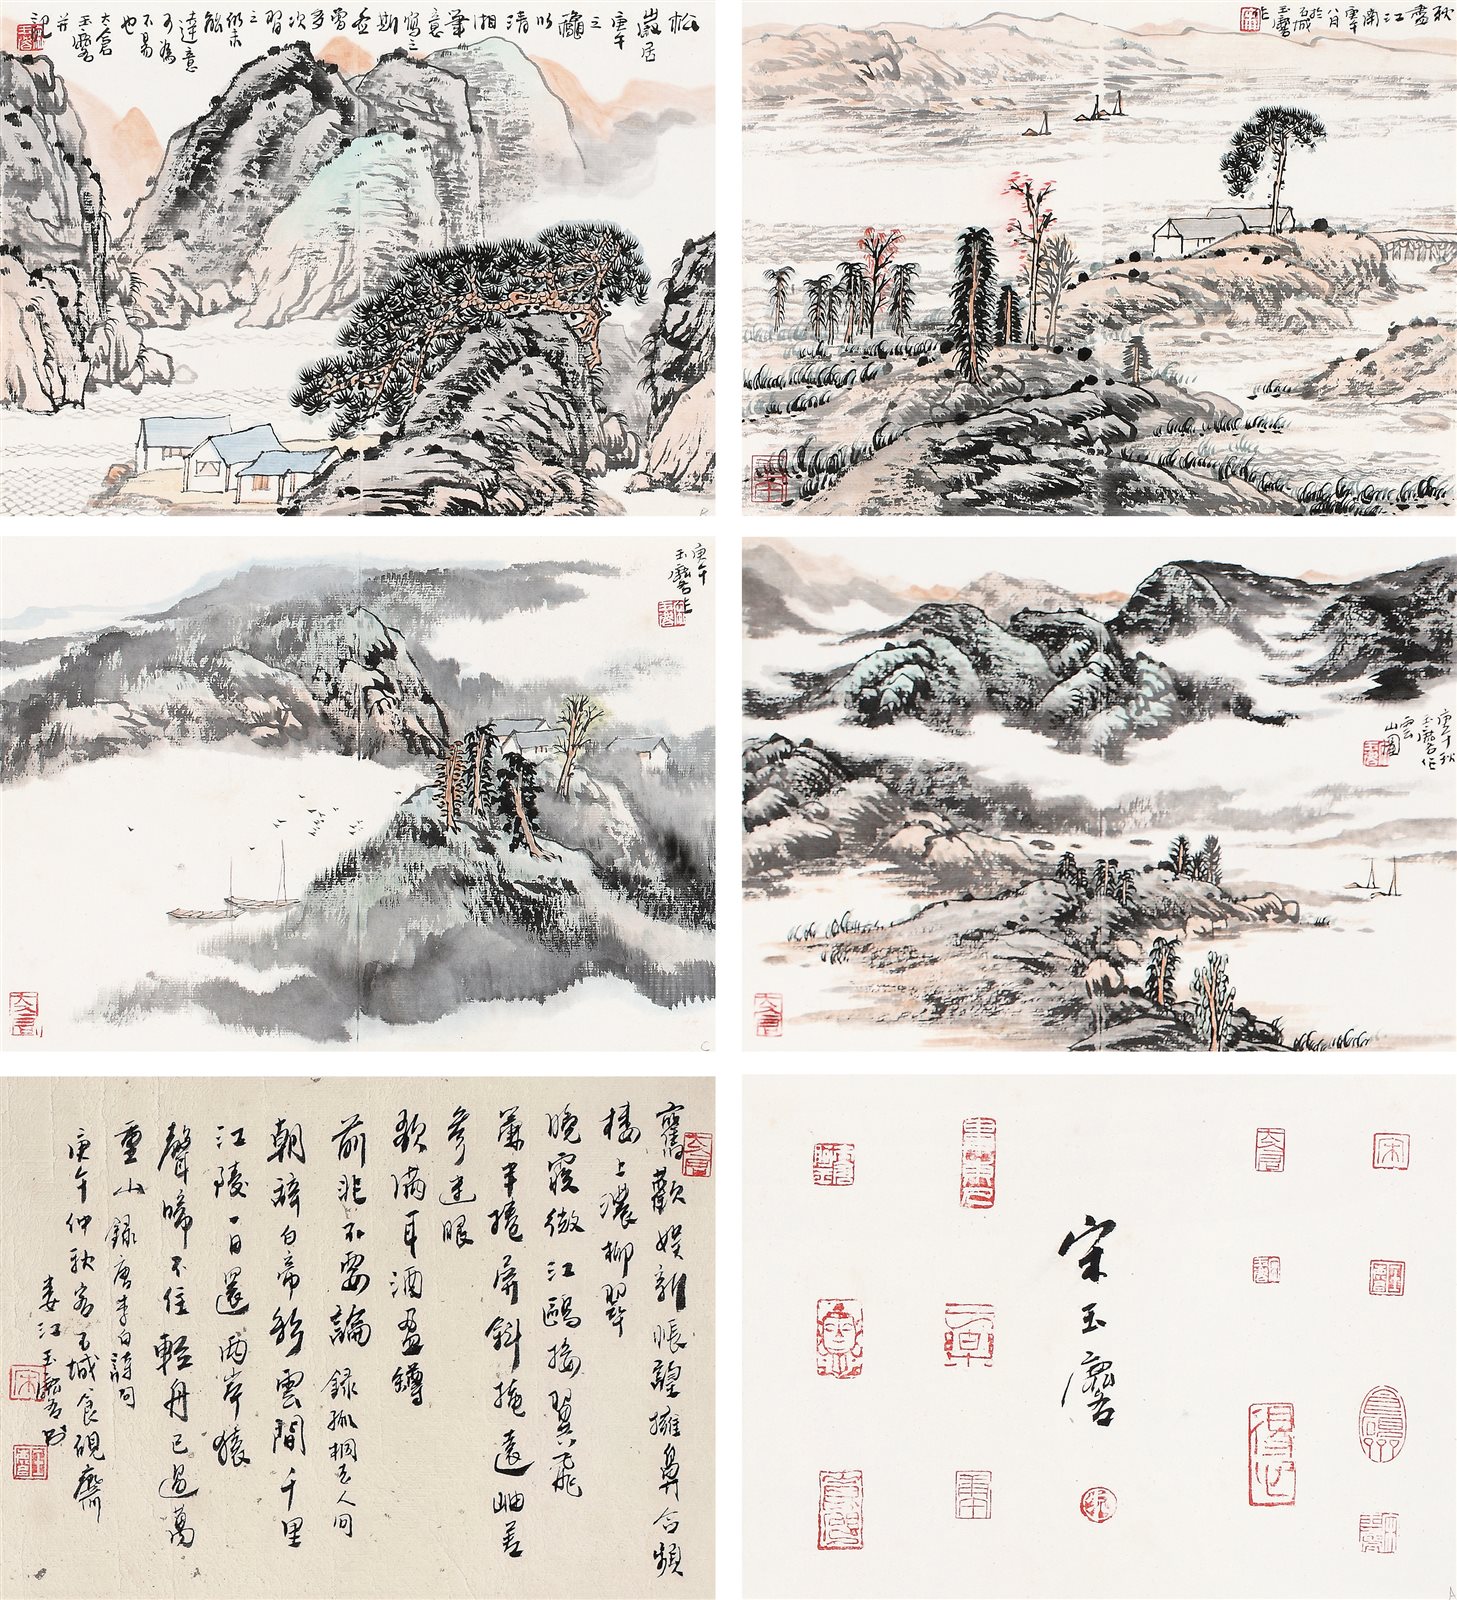 松
巖居
庚午
之
龝
以
清
湘
筆
意
寫三
斯
多
次
習
之
仍未
能
達意
可為
不易
也
太倉
玉麐
并
記
秋
盡
江
南
庚午
八月
於
五城
玉麐
作
庚午
玉麐作
庚午秋
玉麐作
雲
山圖
舊歡娛新悵望擁鼻含嚬
樓上濃柳翠
晚霞微江鷗接翼飛
簾半捲屏斜掩遠岫差
參迷眼
歌滿耳酒盈罇
前非不要論 錄孤桐
朝辭白帝彩雲間千里
江陵一日還兩岸猿
聲啼不住輕舟已過萬
重山 錄唐李白詩句
庚午仲秋客五城食硯齋
婁江玉麐
宋玉麐